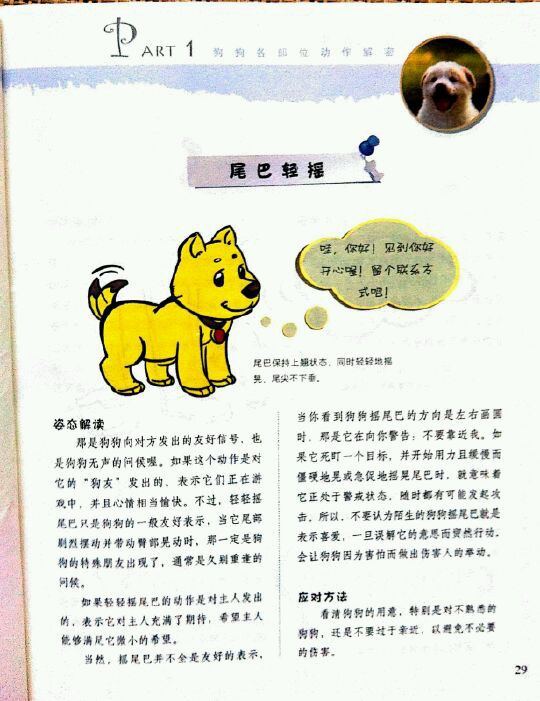 PART 1 狗狗各部位动作解密
尾巴轻摇
哇，你好！见到你好
开心喔！留个联系方
式吧！
尾巴保持上翘状态，同时轻轻地摇
晃，尾尖不下垂。
姿态解读
那是狗狗向对方发出的友好信号，也
是狗狗无声的问候喔。如果这个动作是对
它的“狗友”发出的，表示它们正在游
戏中，并且心情相当愉快。不过，轻轻摇
尾巴只是狗狗的一般友好表示，当它尾部
剧烈摆动并带动臀部晃动时，那一定是狗
狗的特殊朋友出现了，通常是久别重逢的
问候。
如果轻轻摇尾巴的动作是对主人发出
的，表示它对主人充满了期待，希望主人
能够满足它微小的希望。
当然，摇尾巴并不全是友好的表示，
当你看到狗狗摇尾巴的方向是左右画圆
时，那是它在向你警告：不要靠近我。如
果它死盯一个目标，并开始用力且缓慢而
僵硬地晃或急促地摇晃尾巴时，就意味着
它正处于警戒状态，随时都有可能发起攻
击。所以，不要认为陌生的狗狗摇尾巴就是
表示喜爱，一旦误解它的意思而突然行动，
会让狗狗因为害怕而做出伤害人的举动。
应对方法
看清狗狗的用意，特别是对不熟悉的
狗狗，还是不要过于亲近，以避免不必要
的伤害。
29